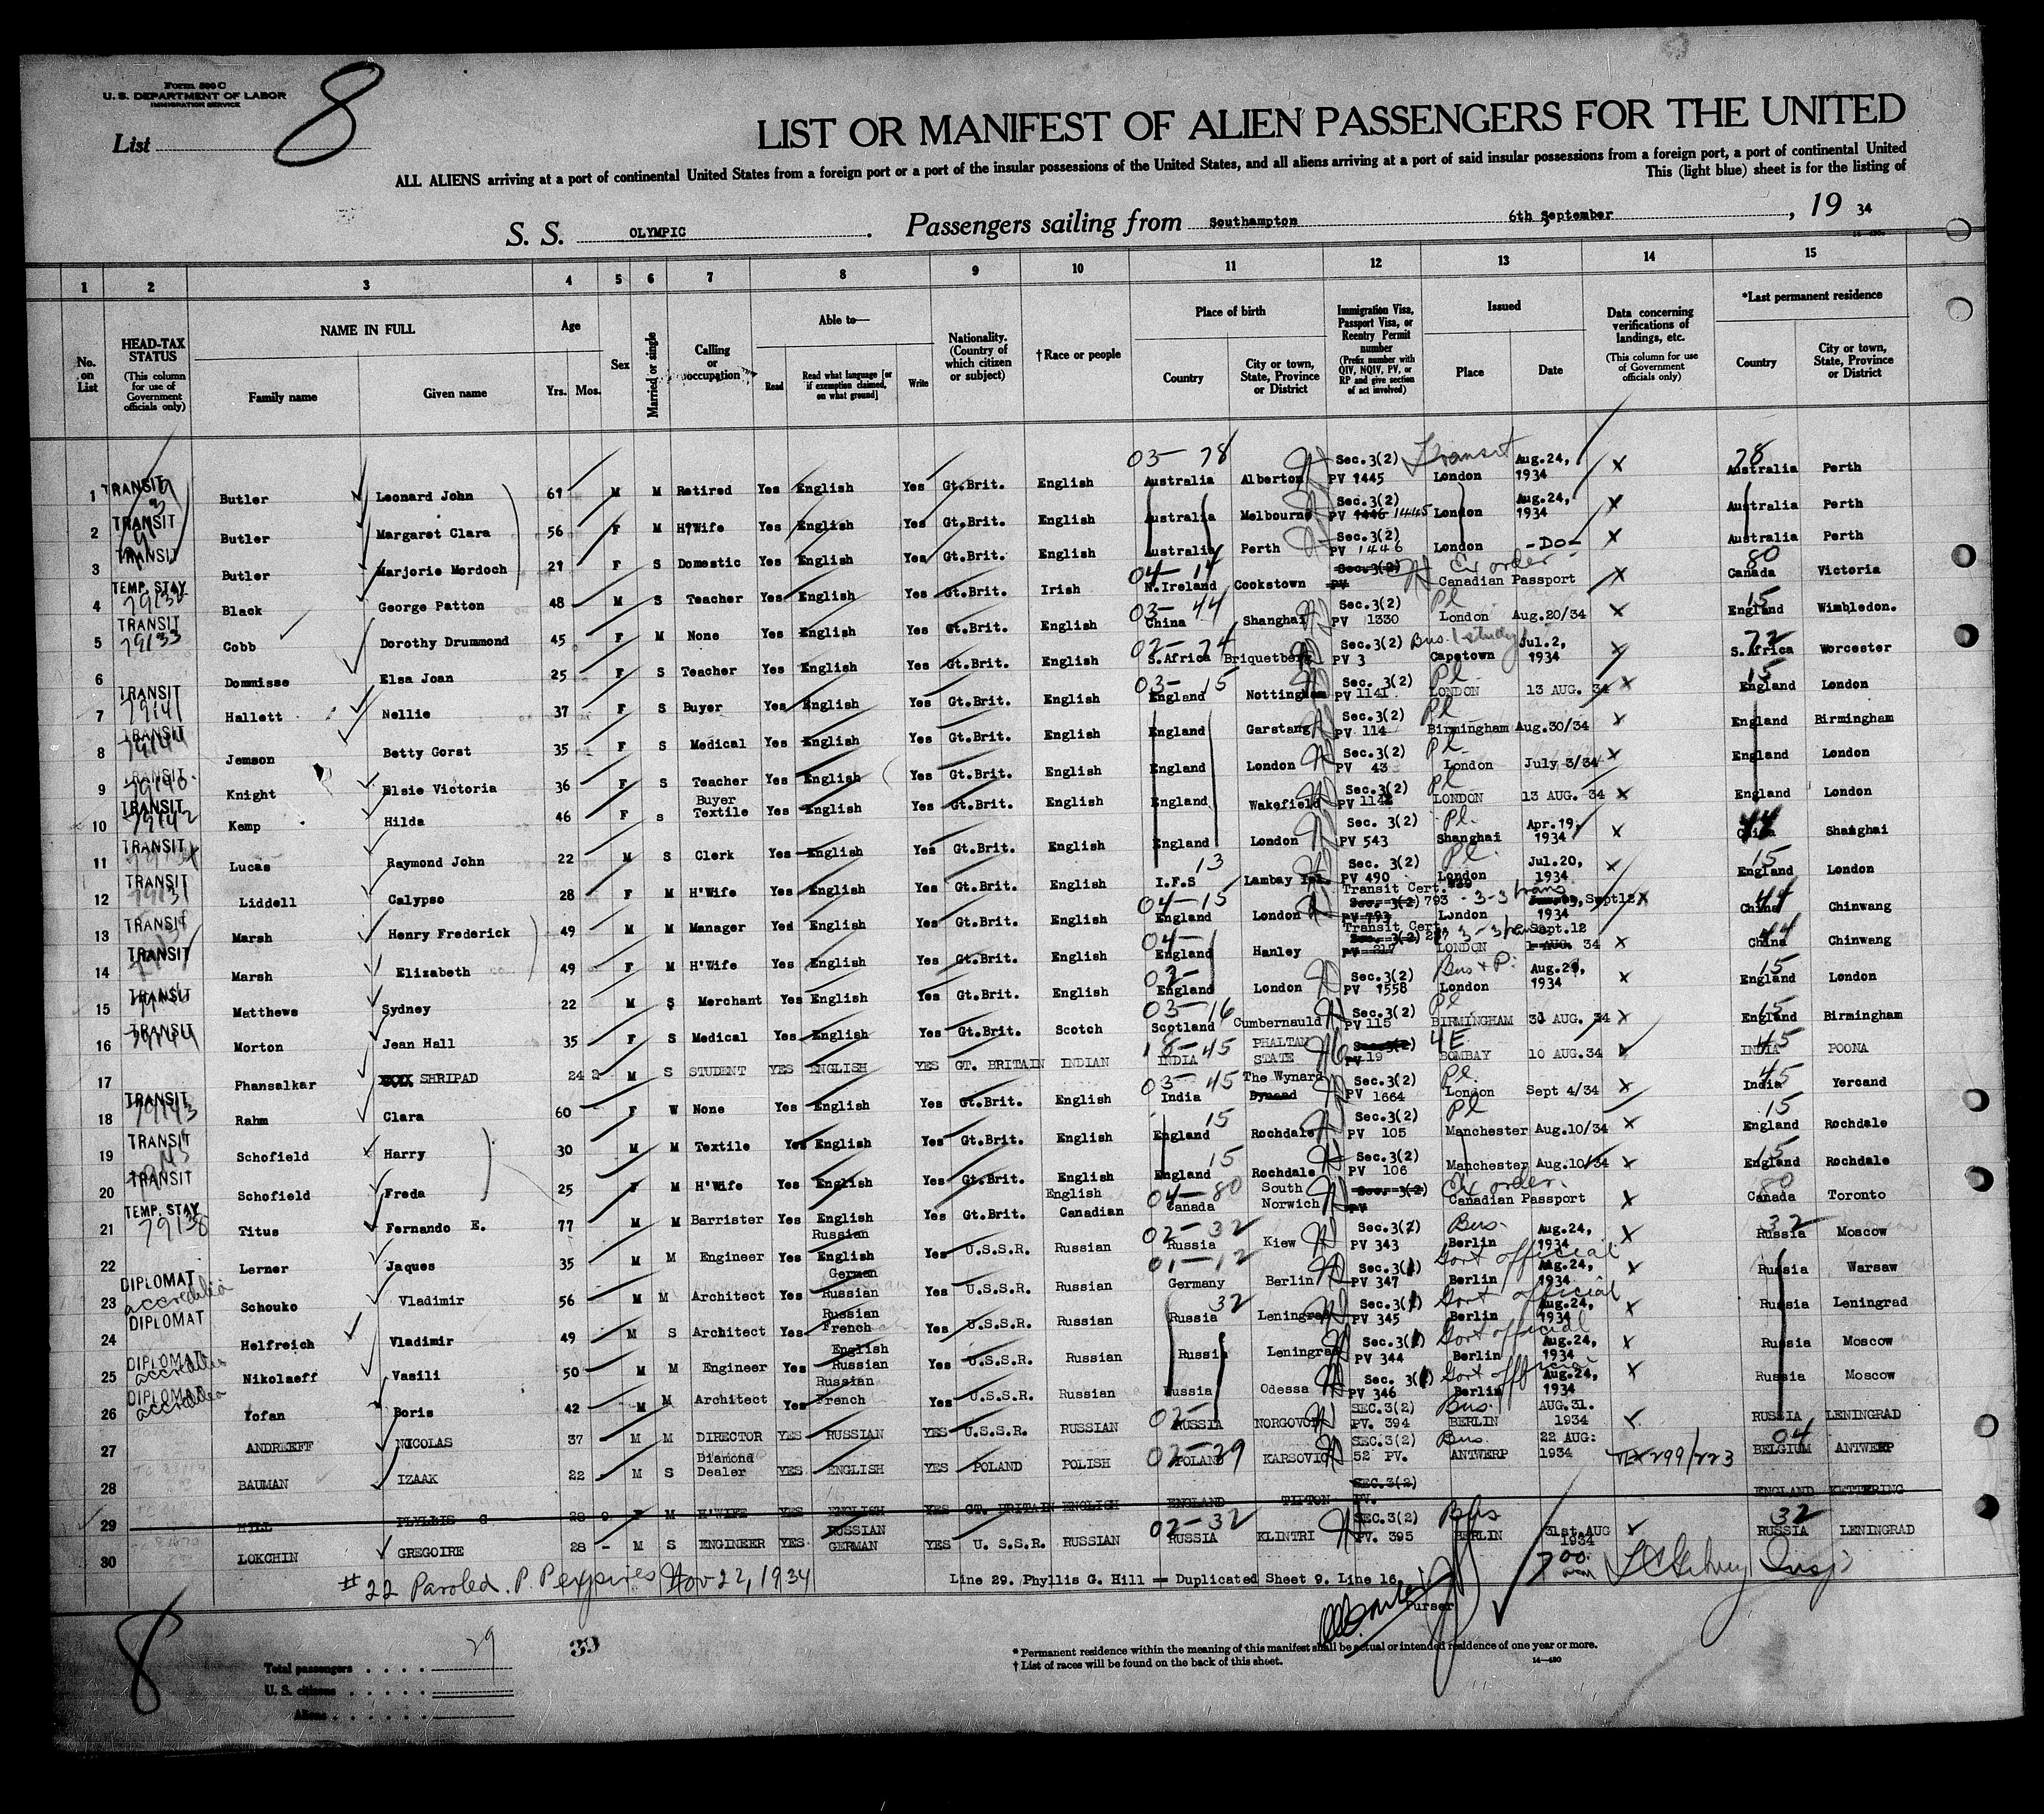 Form 500 C
U. S. DEPARTMENT OF LABOR
IMMIGRATION SERVICE
List 8
LIST OR MANIFEST OF ALIEN PASSENGERS FOR THE UNITED
ALL ALIENS arriving at a port of continental United States from a foreign port or a port of the insular possessions of the United States, and all aliens arriving at a port of said insular possessions from a foreign port, a port of continental United
This (light blue) sheet is for the listing of
S. S. OLYMPIC. Passengers sailing from Southampton 6th September, 19 34
1 2 3 4 5 6 7 8 9 10 11 12 13 14 15
No. on List
HEAD-TAX STATUS (This column for use of Government officials only)
NAME IN FULL Family name Given name
Age Yrs. Mos.
Sex
Married or single
Calling or occupation
Able to— Read Read what language [or if exemption claimed, on what ground] Write
Nationality. (Country of which citizen or subject)
†Race or people
Place of birth Country City or town, State, Province or District
Immigration Visa, Passport Visa, or Reentry Permit number (Prefix number with QIV, NQIV, PV, or RP and give section of act involved)
Issued Place Date
Data concerning verifications of landings, etc. (This column for use of Government officials only)
*Last permanent residence Country City or town, State, Province or District
1 TRANSIT Butler Leonard John 61 M M Retired Yes English Yes Gt.Brit. English 03-78 Australia Alberton Sec.3(2) PV 1445 Transit London Aug.24, 1934 x 78 Australia Perth
2 TRANSIT Butler Margaret Clara 56 F M H'Wife Yes English Yes Gt.Brit. English Australia Melbourne Sec.3(2) PV 1446 1445 London Aug.24, 1934 x Australia Perth
3 TRANSIT Butler Marjorie Mordoch 21 F S Domestic Yes English Yes Gt.Brit. English Australia Perth Sec.3(2) PV 1446 London -Do- x Australia Perth
4 TEMP. STAY Black George Patton 48 M S Teacher Yes English Yes Gt.Brit. Irish 04-14 N.Ireland Cookstown Sec.3(2) PV Ex order Canadian Passport x 80 Canada Victoria
5 TRANSIT 79133 Cobb Dorothy Drummond 45 F M None Yes English Yes Gt.Brit. English 03-44 China Shanghai Sec.3(2) PV 1330 Pl London Aug.20/34 x 15 England Wimbledon.
6 Dommisse Elsa Joan 25 F S Teacher Yes English Yes Gt.Brit. English 02-74 S.Africa Briquetberg Sec.3(2) PV 3 Bus. study Capetown Jul.2, 1934 x S.Africa Worcester
7 TRANSIT 79141 Hallett Nellie 37 F S Buyer Yes English Yes Gt.Brit. English 03-15 England Nottingham Sec. 3(2) PV 1141 Pl LONDON 13 AUG. 34 x 15 England London
8 TRANSIT Jemson Betty Gorst 35 F S Medical Yes English Yes Gt.Brit. English England Garstang Sec.3(2) PV 114 Pl Birmingham Aug.30/34 x England Birmingham
9 TRANSIT 79140 Knight Elsie Victoria 36 F S Teacher Yes English Yes Gt.Brit. English England London Sec.3(2) PV 43 Pl London July 3/34 x England London
10 TRANSIT 79142 Kemp Hilda 46 F S Buyer Textile Yes English Yes Gt.Brit. English England Wakefield Sec.3(2) PV 1142 Pl LONDON 13 AUG. 34 x England London
11 TRANSIT Lucas Raymond John 22 M S Clerk Yes English Yes Gt.Brit. English England London Sec. 3(2) PV 543 Pl. Shanghai Apr.19, 1934 x 44 China Shanghai
12 TRANSIT Liddell Calypso 28 F M H'Wife Yes English Yes Gt.Brit. English 13 I.F.S Lambay Isl. Sec. 3(2) PV 490 Pl. London Jul.20, 1934 x 15 England London
13 TRANSIT Marsh Henry Frederick 49 M M Manager Yes English Yes Gt.Brit. English 04-15 England London Transit Cert. Sec. 3(2) 793 PV 793 3-3 trans London Sept12 1934 x 44 China Chinwang
14 TRANSIT Marsh Elizabeth 49 F M H'Wife Yes English Yes Gt.Brit. English 04- England Hanley Transit Cert. Sec. 3(2) PV 217 3-3 trans LONDON Sept.12 1 AUG. 34 x 44 China Chinwang
15 TRANSIT Matthews Sydney 22 M S Merchant Yes English Yes Gt.Brit. English 02- England London Sec.3(2) PV 1558 Bus + Pl London Aug.29, 1934 x 15 England London
16 TRANSIT Morton Jean Hall 35 F S Medical Yes English Yes Gt.Brit. Scotch 03-16 Scotland Cumbernauld Sec.3(2) PV 115 Pl BIRMINGHAM 30 AUG. 34 x 15 England Birmingham
17 Phansalkar SHRIPAD 24 2 M S STUDENT YES ENGLISH YES GT. BRITAIN INDIAN 18-45 INDIA PHALTAN STATE Sec.3(2) PV 19 4E BOMBAY 10 AUG.34 45 INDIA POONA
18 TRANSIT 79143 Rahm Clara 60 F W None Yes English Yes Gt.Brit. English 03-45 India The Wynard Sec.3(2) PV 1664 Pl. London Sept 4/34 x 45 India Yercand
19 TRANSIT Schofield Harry 30 M M Textile Yes English Yes Gt.Brit. English 15 England Rochdale Sec.3(2) PV 105 Pl Manchester Aug.10/34 x 15 England Rochdale
20 TRANSIT Schofield Freda 25 F M H'Wife Yes English Yes Gt.Brit. English 15 England Rochdale Sec.3(2) PV 106 Manchester Aug.10/34 x 15 England Rochdale
21 TEMP. STAY 79138 Titus Fernando E. 77 M M Barrister Yes English Yes Gt.Brit. English Canadian 04-80 Canada South Norwich Sec. 3(2) PV Ex order. Canadian Passport x 80 Canada Toronto
22 Lerner Jaques 35 M M Engineer Yes Russian English Yes U.S.S.R. Russian 02-32 Russia Kiew Sec.3(2) PV 343 Bus. Berlin Aug.24, 1934 x 32 Russia Moscow
23 DIPLOMAT Schouko Vladimir 56 M M Architect Yes German Russian Yes U.S.S.R. Russian 01-12 Germany Berlin Sec.3(1) PV 347 Govt official Berlin Aug.24, 1934 x Russia Warsaw
24 DIPLOMAT Helfreich Vladimir 49 M S Architect Yes Russian French Yes U.S.S.R. Russian 32 Russia Leningrad Sec.3(1) PV 345 Govt official Berlin Aug.24, 1934 x Russia Leningrad
25 DIPLOMAT Nikolaeff Vasili 50 M M Engineer Yes English Russian Yes U.S.S.R. Russian Russia Leningrad Sec.3(1) PV 344 Govt official Berlin Aug.24, 1934 x Russia Moscow
26 DIPLOMAT Yofan Boris 42 M M Architect Yes Russian French Yes U.S.S.R. Russian Russia Odessa Sec. 3(1) PV 346 Govt official Berlin Aug.24, 1934 x Russia Moscow
27 ANDREEFF NICOLAS 37 M M DIRECTOR YES RUSSIAN YES U.S.S.R. RUSSIAN 02- RUSSIA NORGOVOD SEC.3(2) PV. 394 Bus. BERLIN AUG.31. 1934 RUSSIA LENINGRAD
28 BAUMAN IZAAK 22 M S Diamond Dealer YES ENGLISH YES POLAND POLISH 02-29 POLAND KARSOVIC SEC.3(2) 52 PV. Bus ANTWERP 22 AUG: 1934 299/223 04 BELGIUM ANTWERP
29 HILL PLYLLIS G 28 9 F M H'WIFE YES ENGLISH YES GT. BRITAIN ENGLISH ENGLAND TIPTON SEC.3(2) PV. ENGLAND KETTERING
30 LOKCHIN GREGOIRE 28 - M S ENGINEER YES RUSSIAN GERMAN YES U. S.S.R. RUSSIAN 02-32 RUSSIA KLINTRI SEC.3(2) PV. 395 Bus BERLIN 31st.AUG 1934 32 RUSSIA LENINGRAD
#22 Paroled. P.P. expires Nov 22, 1934
Line 29. Phyllis G. Hill — Duplicated Sheet 9. Line 16.
Purser
8
39
Total passengers . . . . 29
U. S. citizens . . . . .
Aliens . . . . . .
* Permanent residence within the meaning of this manifest shall be actual or intended residence of one year or more.
† List of races will be found on the back of this sheet.
14—430